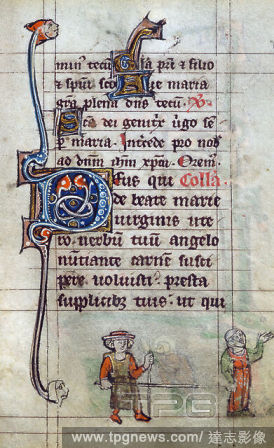 min' tecu Gla pri & filio
& spui sco Aue maria
gra plena dns tecu
Sca dei genitrix virgo sep
maria. Intcede pro nob
ad dnm ihm xpm. Orem'.
Deus qui Colla.
de beate marie
uirginis ute
ro. uerbum tuu angelo
nuntiante carne susci
pere uoluisti? presta
supplicibz tuis. ut qui
TPG
www.tpgnews.com / 達志影像